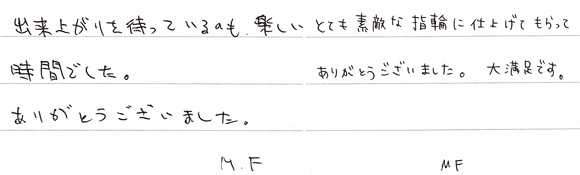 出来上がりを待っているのも、楽しい
時間でした。
ありがとうございました。
M.F
とても素敵な指輪に仕上げてもらって
ありがとうございました。大満足です。
MF